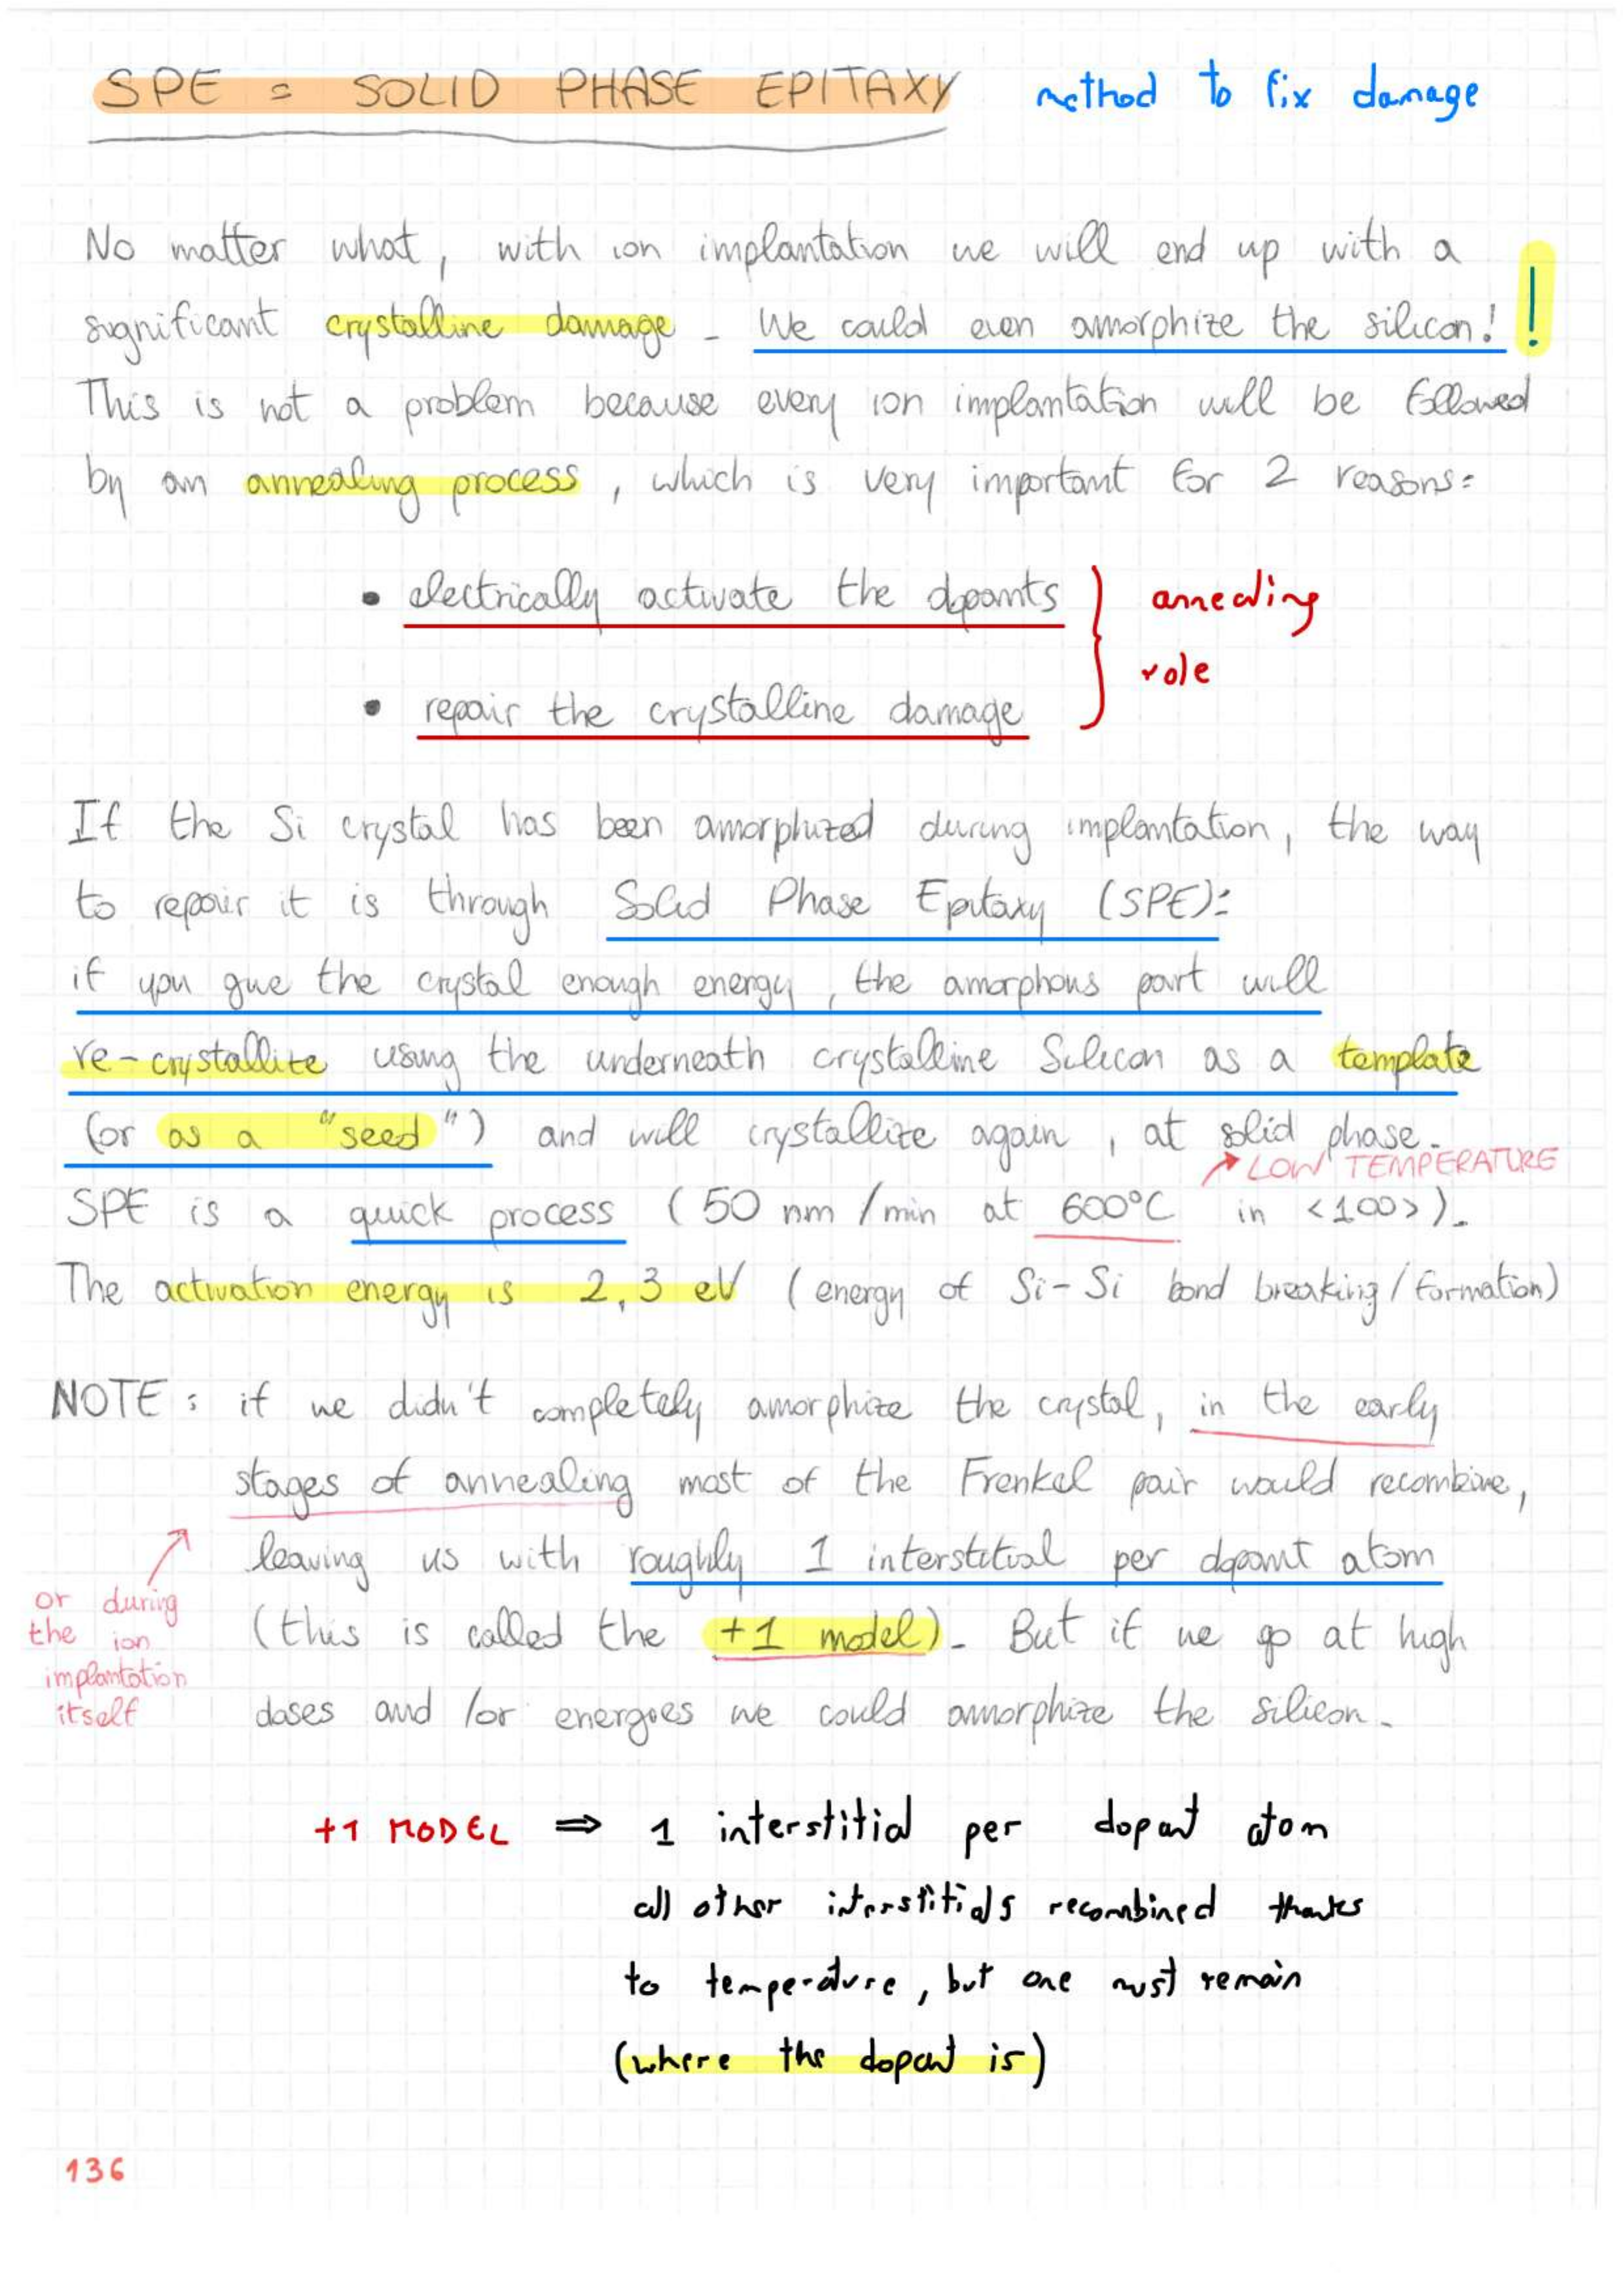 SPE = SOLID PHASE EPITAXY method to fix damage
No matter what, with ion implantation we will end up with a
significant crystalline damage - We could even amorphize the silicon! !
This is not a problem because every ion implantation will be followed
by an annealing process, which is very important for 2 reasons:
• electrically activate the dopants
annealing
role
• repair the crystalline damage
If the Si crystal has been amorphized during implantation, the way
to repair it is through Solid Phase Epitaxy (SPE):
if you give the crystal enough energy, the amorphous part will
re-crystallize using the underneath crystalline Silicon as a template
(or as a "seed") and will crystallize again, at solid phase.
LOW TEMPERATURE
SPE is a quick process (50 nm/min at 600°C in <100>).
The activation energy is 2,3 eV (energy of Si-Si bond breaking/formation)
NOTE: if we didn't completely amorphize the crystal, in the early
stages of annealing most of the Frenkel pair would recombine,
leaving us with roughly 1 interstitial per dopant atom
or during
the ion
implantation
itself
(this is called the +1 model). But if we go at high
doses and /or energies we could amorphize the silicon.
+1 MODEL ⇒ 1 interstitial per dopant atom
all other interstitials recombined thanks
to temperature, but one must remain
(where the dopant is)
136